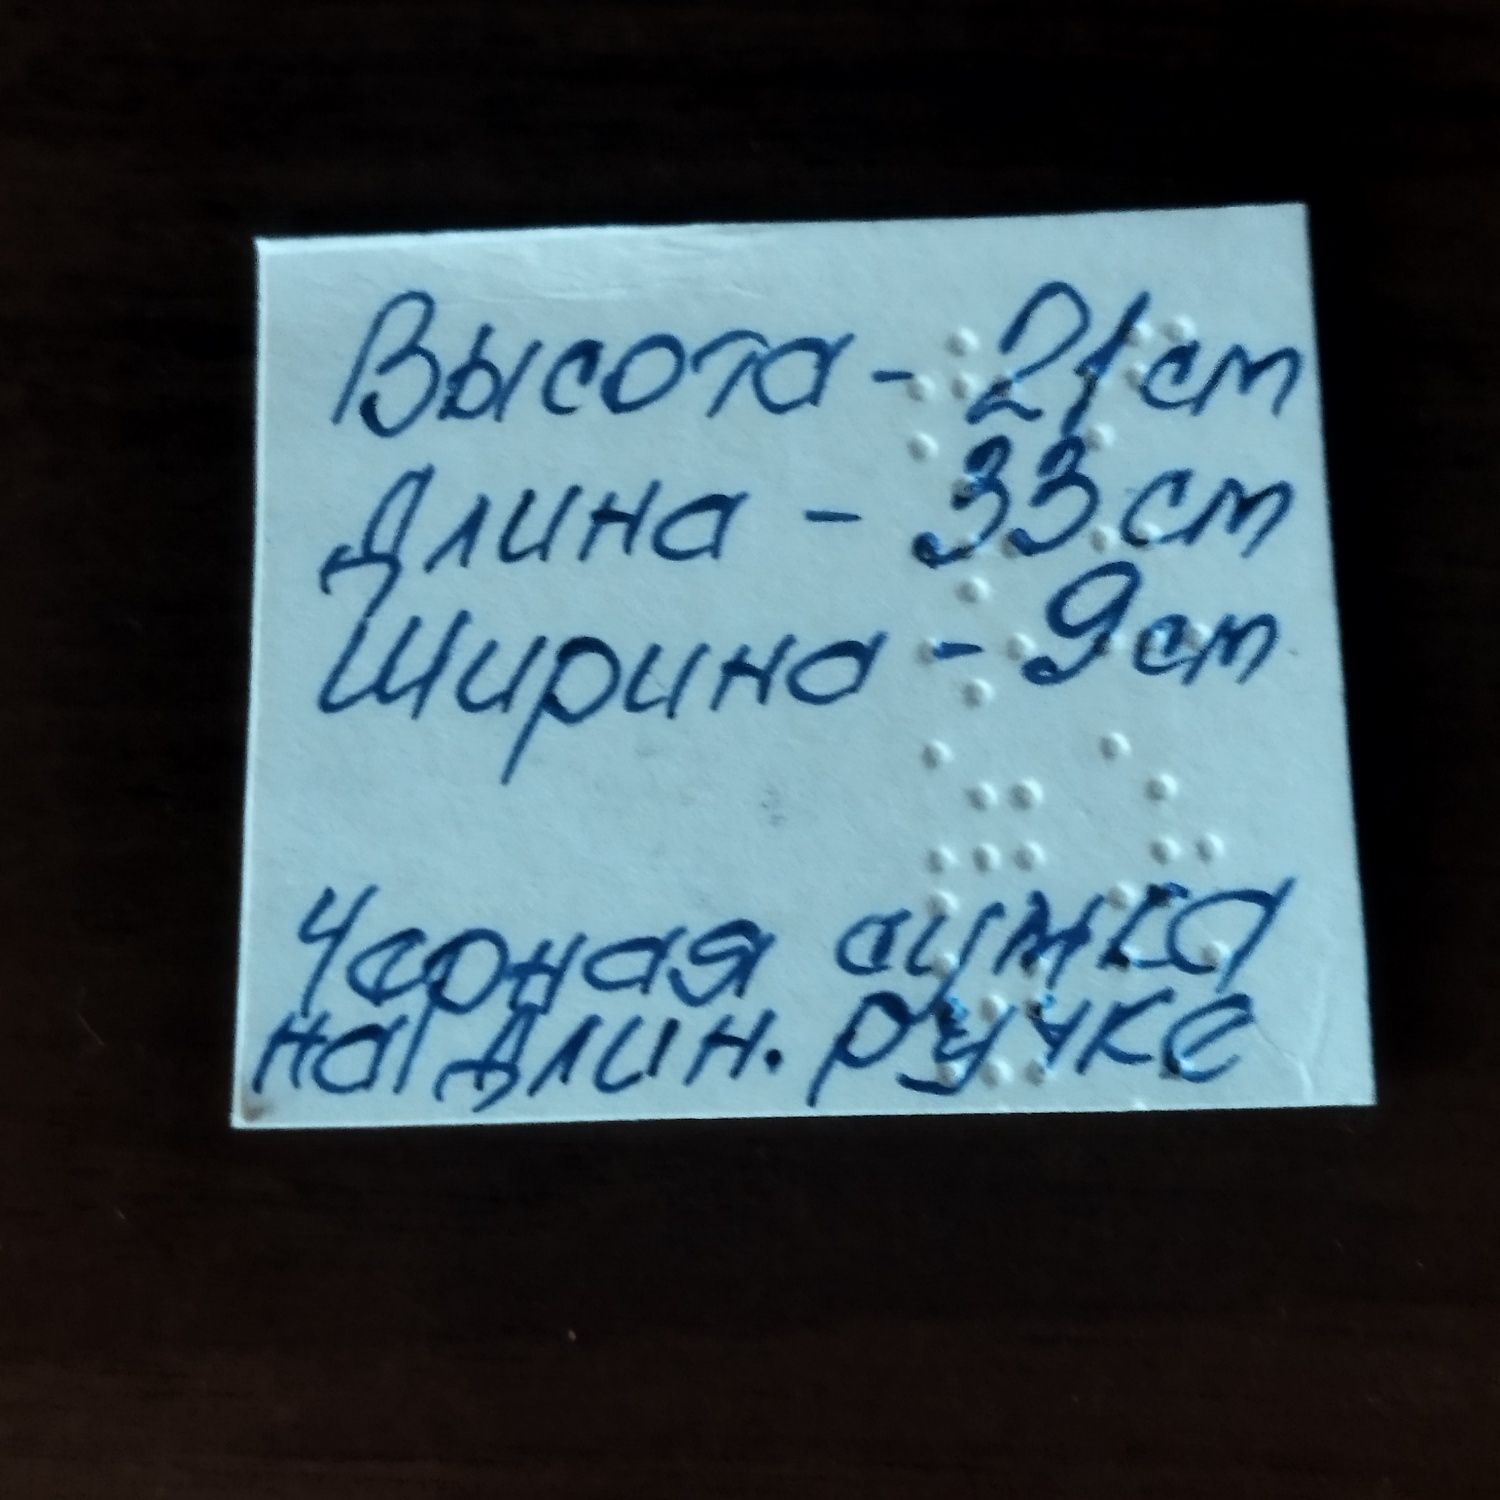 Высота - 21 см
Длина - 33 см
Ширина - 9 см
Черная сумка
на длин. ручке